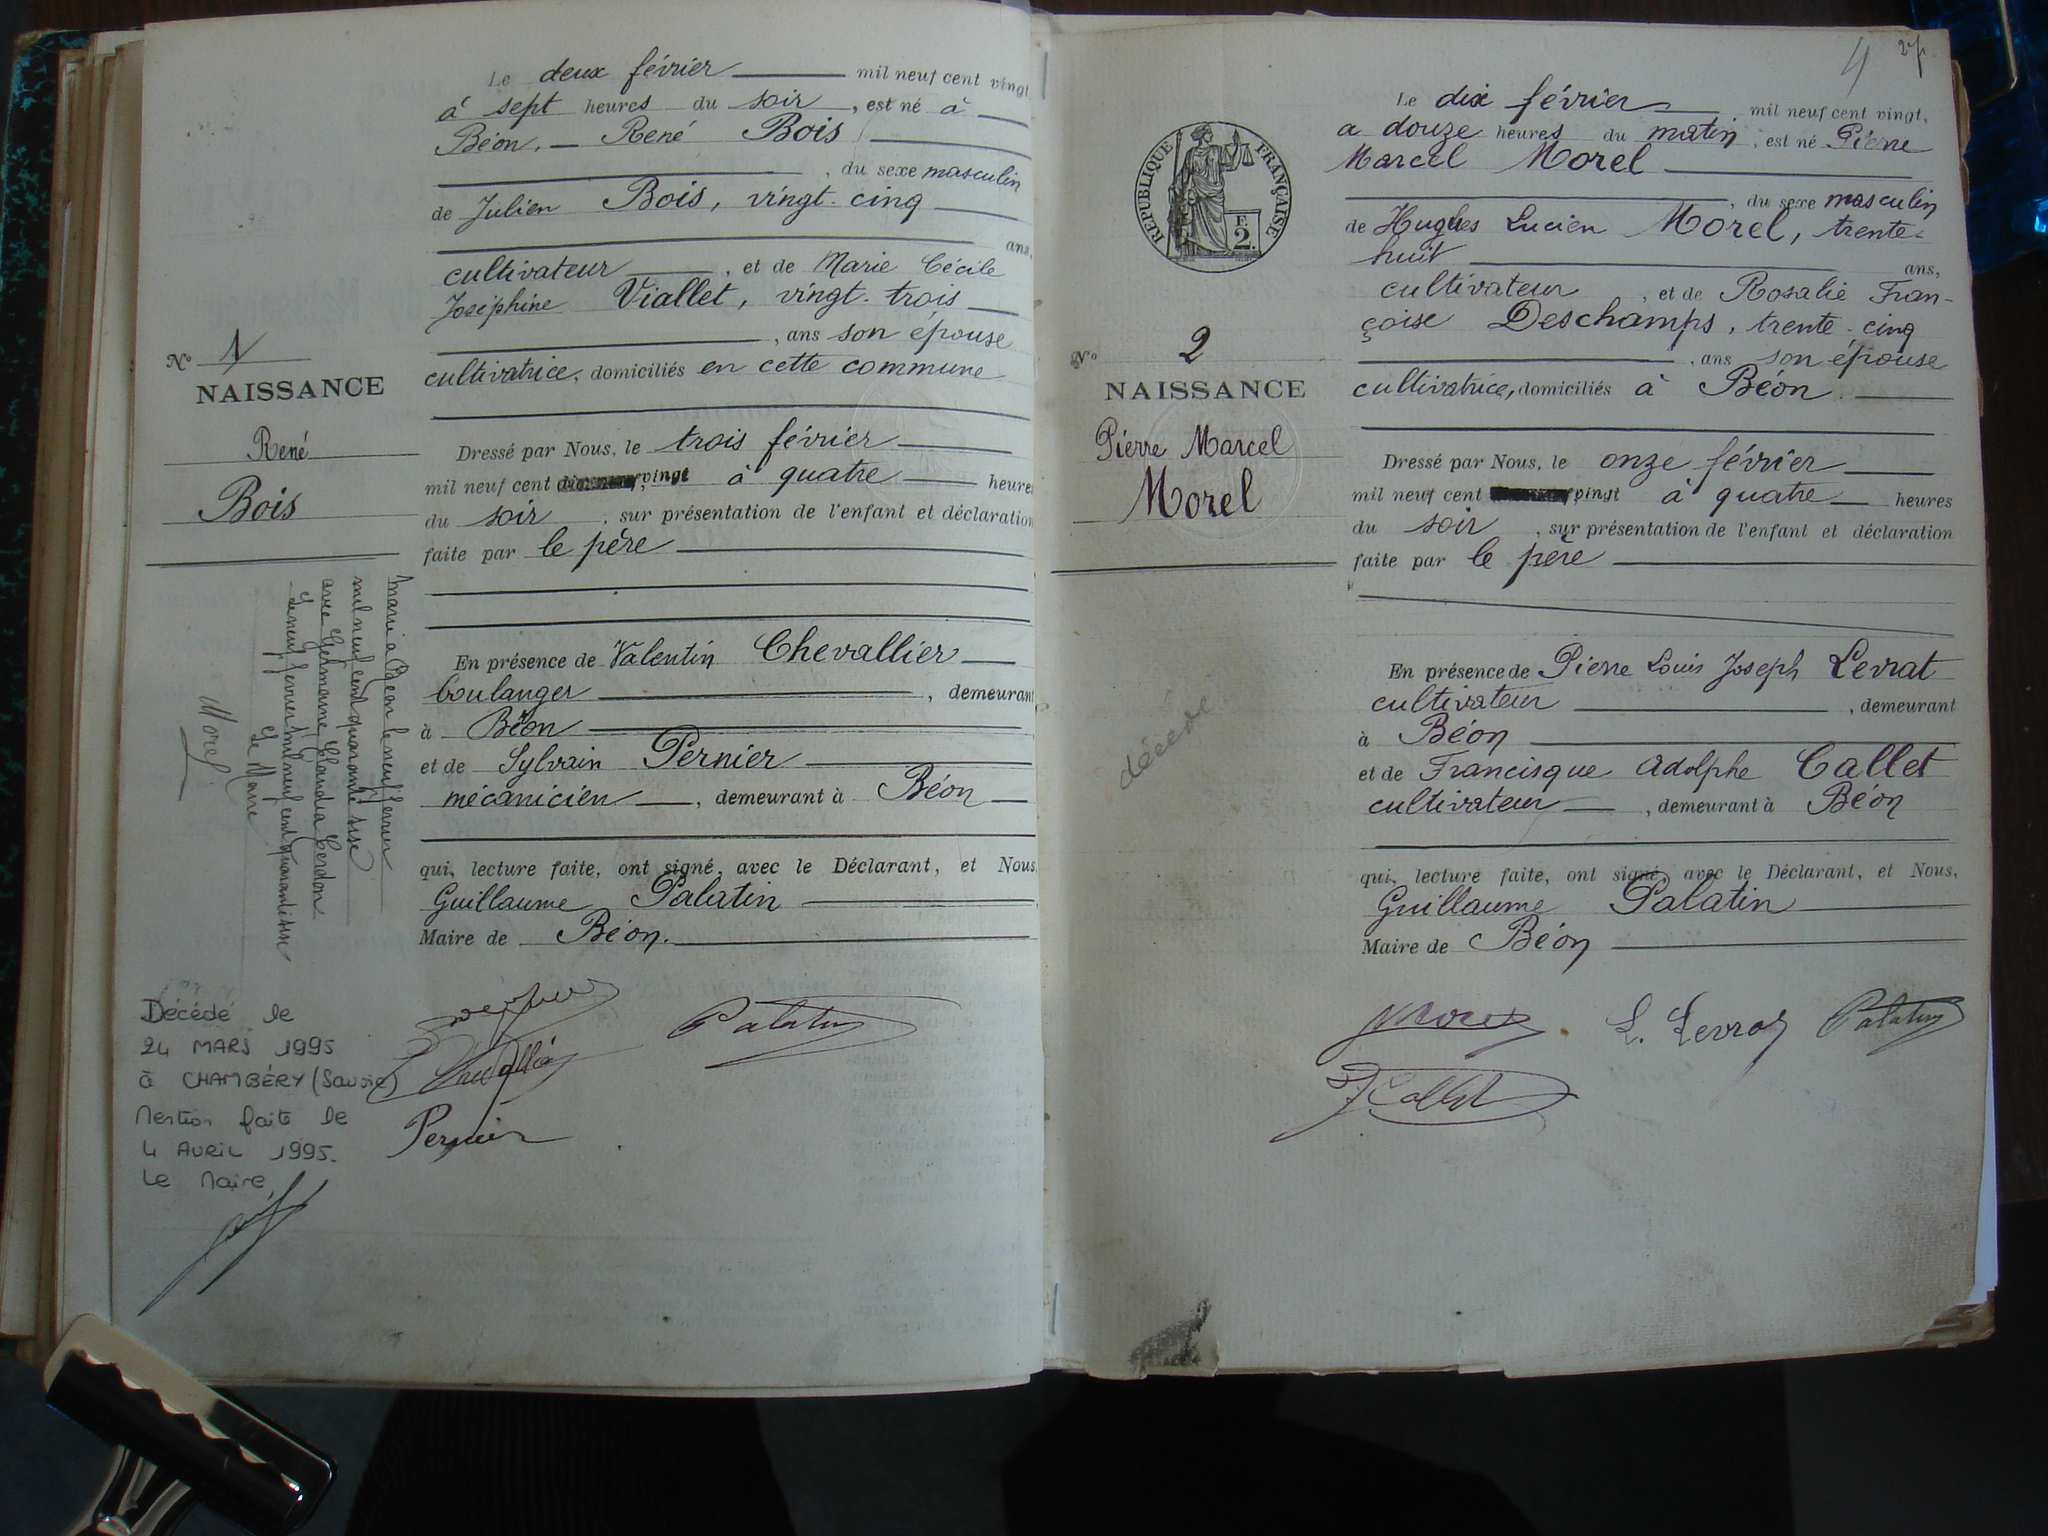 Le deux février mil neuf cent vingt
à sept heures du soir, est né à
Béon. — René Bois
, du sexe masculin
de Julien Bois, vingt-cinq
ans,
cultivateur, et de Marie Cécile
Joséphine Viallet, vingt-trois
, ans son épouse
cultivatrice, domiciliés en cette commune
Nº 1
NAISSANCE
René
Bois
Dressé par Nous, le trois février
mil neuf cent vingt à quatre heures
du soir, sur présentation de l'enfant et déclaration
faite par le père
En présence de Valentin Chevallier
boulanger, demeurant
à Béon
et de Sylvain Pernier
mécanicien, demeurant à Béon
qui, lecture faite, ont signé, avec le Déclarant, et Nous
Guillaume Palatin
Maire de Béon.
Marié à Béon le neuf février
mil neuf cent quarante six
avec Germaine Claudia Cerdon
Le neuf février mil neuf cent quarante six
Le Maire
Morel
Décédé le
24 MARS 1995
à CHAMBÉRY (Savoie)
Mention faite le
4 AVRIL 1995.
Le Maire,
Palatin
Pernier
4
RÉPUBLIQUE FRANÇAISE
F.
2.
Le dix février mil neuf cent vingt,
a douze heures du matin, est né Pierre
Marcel Morel
, du sexe masculin
de Hugues Lucien Morel, trente-
huit ans,
cultivateur, et de Rosalie Fran-
çoise Deschamps, trente-cinq
, ans son épouse
cultivatrice, domiciliés à Béon
Nº 2
NAISSANCE
Pierre Marcel
Morel
Dressé par Nous, le onze février
mil neuf cent vingt à quatre heures
du soir, sur présentation de l'enfant et déclaration
faite par le père
décédé
En présence de Pierre Louis Joseph Levrat
cultivateur, demeurant
à Béon
et de Francisque Adolphe Callet
cultivateur, demeurant à Béon
qui, lecture faite, ont signé, avec le Déclarant, et Nous,
Guillaume Palatin
Maire de Béon
Morel L. Levrat Palatin
F Callet